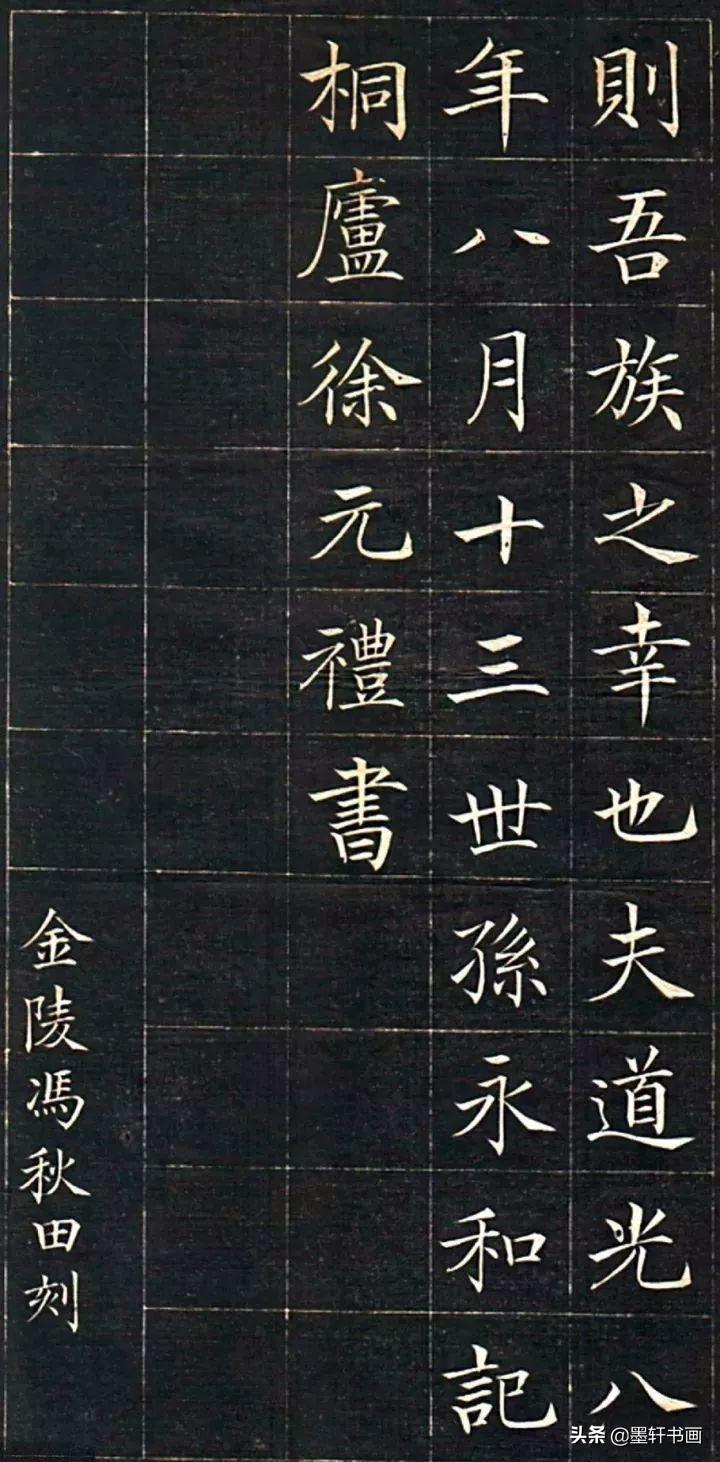 則吾族之幸也夫道光八
年八月十三世孫永和記
桐廬徐元禮書
金陵馮秋田刻
头条 @墨轩书画